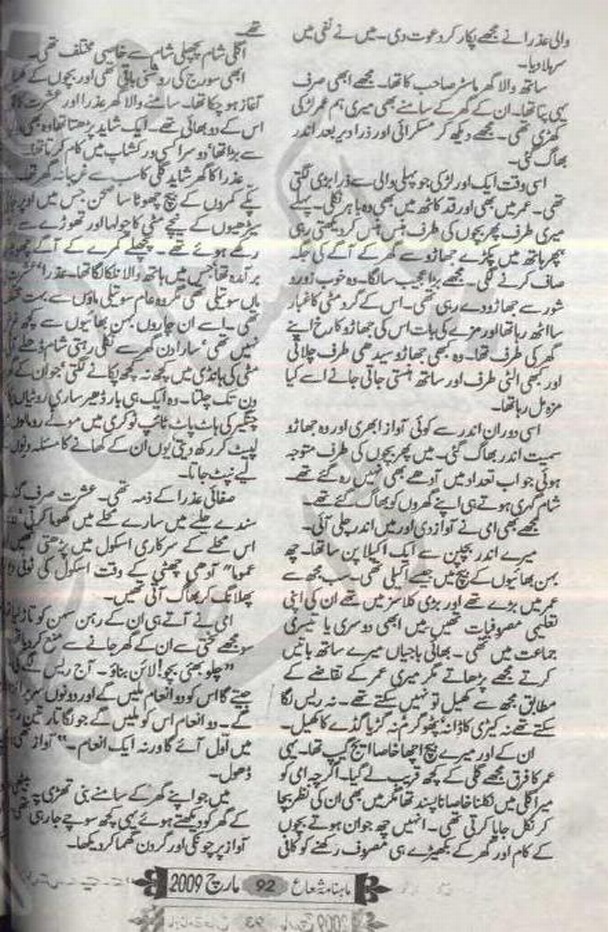 والی عذرا نے مجھے پکار کر دعوت دی۔ میں نے نفی میں
سر ہلا دیا۔
ساتھ والا گھر ماسٹر صاحب کا تھا۔ مجھے ابھی صرف
یہی پتا تھا۔ ان کے گھر کے سامنے بھی میری ہم عمر لڑکی
کھڑی تھی۔ مجھے دیکھ کر مسکرائی اور ذرا دیر بعد اندر
بھاگ گئی۔
اسی وقت ایک اور لڑکی جو پہلی والی سے ذرا بڑی لگتی
تھی۔ عمر میں بھی اور قد کاٹھ میں بھی وہ باہر نکلی۔ پہلے
میری طرف پھر بچوں کی طرف ہنس ہنس کر دیکھتی رہی
پھر ہاتھ میں پکڑے جھاڑو سے گھر کے آگے کی جگہ
صاف کرنے لگی۔ مجھے بڑا عجیب سا لگا۔ وہ خوب زور و
شور سے جھاڑو دے رہی تھی۔ اس کے گرد مٹی کا غبار
سا اٹھ رہا تھا اور مزے کی بات اس کی جھاڑو کا رخ اپنے
گھر کی طرف تھا۔ وہ کبھی جھاڑو سیدھی طرف چلاتی
اور کبھی الٹی طرف اور ساتھ ہنستی جاتی جانے اسے کیا
مزہ مل رہا تھا۔
اسی دوران اندر سے کوئی آواز ابھری اور وہ جھاڑو
سمیت اندر بھاگ گئی۔ میں پھر بچوں کی طرف متوجہ
ہوئی جو اب تعداد میں آدھے بھی نہیں رہ گئے تھے۔
شام گہری ہوتے ہی اپنے گھروں کو بھاگ گئے تھے۔
مجھے بھی امی نے آواز دی اور میں اندر چلی آئی۔
میرے اندر بچپن سے ایک اکیلا پن سا تھا۔ چھ
بہن بھائیوں کے بیچ میں جیسے اکیلی تھی۔ سب مجھ سے
عمر میں بڑے تھے اور بڑی کلاسز میں تھے ان کی اپنی
تعلیمی مصروفیات تھیں میں ابھی دوسری یا تیسری
جماعت میں تھی۔ بھائی باجیاں میرے ساتھ باتیں
کرتے مجھے پڑھاتے مگر میری عمر کے تقاضے کے
مطابق مجھ سے کھیل تو نہیں سکتے تھے۔ نہ ریس لگا
سکتے تھے نہ کیڑی کاڈا نہ پٹھو گرم نہ گڑیا گڈے کا کھیل۔
ان کے اور میرے بیچ اچھا خاصا ایج گیپ تھا۔ یہی
عمر کا فرق مجھے گلی کے کچھ قریب لے گیا۔ اگرچہ امی کو
میرا گلی میں نکلنا خاصا ناپسند تھا مگر میں بھی ان کی نظر بچا
کر نکل جایا کرتی تھی۔ انہیں چھ جوان ہوتے بچوں
کے کام اور گھر کے بکھیڑے ہی مصروف رکھنے کو کافی
تھے۔
اگلی شام پچھلی شام سے خاصی مختلف تھی۔
ابھی سورج کی روشنی باقی تھی اور بچوں کے
آغاز ہو چکا تھا۔ سامنے والا گھر عذرا اور عشرت کا
اس کے دو بھائی تھے۔ ایک شاید پڑھتا تھا وہ بھی
سے بڑا تھا' دوسرا کسی ورکشاپ میں کام کرتا تھا۔
عذرا کا گھر شاید گلی کا سب سے غریبانہ گھر تھا۔
پکے کمروں کے بیچ چھوٹا سا صحن جس میں اوپر
سیڑھیوں کے نیچے مٹی کا چولہا اور تھوڑے سے
رکھے ہوئے تھے۔ پچھلے کمرے کے آگے
برآمدہ تھا جس میں ہاتھ والا نلکا لگا تھا۔ عذرا'
ماں سوتیلی تھی مگر وہ عام سوتیلی ماؤں سے بہت
تھی۔ اسے ان چاروں بہن بھائیوں سے کچھ
نہیں تھی' سارا دن گھر سے نکلی رہتی شام ڈھلے
مٹی کی ہانڈی میں کچھ نہ کچھ پکانے لگتی' جو ان کے
دن تک چلتا۔ وہ ایک ہی بار ڈھیر ساری روٹیاں
چنگیر کی ہاٹ پاٹ ٹائپ ٹوکری میں موٹے رومالوں
لپیٹ کر رکھ دیتی یوں ان کے کھانے کا مسئلہ دونوں
لیے نپٹ جاتا۔
صفائی عذرا کے ذمہ تھی۔ عشرت صرف
سندے حلیے میں سارے محلے میں گھوما کرتی'
اس محلے کے سرکاری اسکول میں پڑھتی تھیں
عموما" آدھی چھٹی کے وقت اسکول کی ٹوٹی
پھلانگ کر بھاگ آتی تھیں۔
امی نے آتے ہی ان کے رہن سہن کو تاڑ لیا
سو مجھے سختی سے ان کے گھر جانے سے منع کر دیا
"چلو بھئی بچو! لائن بناؤ۔ آج ریس لگے گی
جیتے گا اس کو دو انعام ملیں گے اور دونوں
گے۔ دو انعام اس کو ملیں گے جو لگا تار تین
میں اول آئے گا ورنہ ایک انعام۔" آواز تھی
ڈھول۔
میں جو اپنے گھر کے سامنے بنی تھڑی پہ
کے گھر کو دیکھتے ہوئے یہی کچھ سوچے جا رہی
آواز پر چونکی اور گردن گھما کر دیکھا۔
ماہنامہ شعاع 92 مارچ 2009